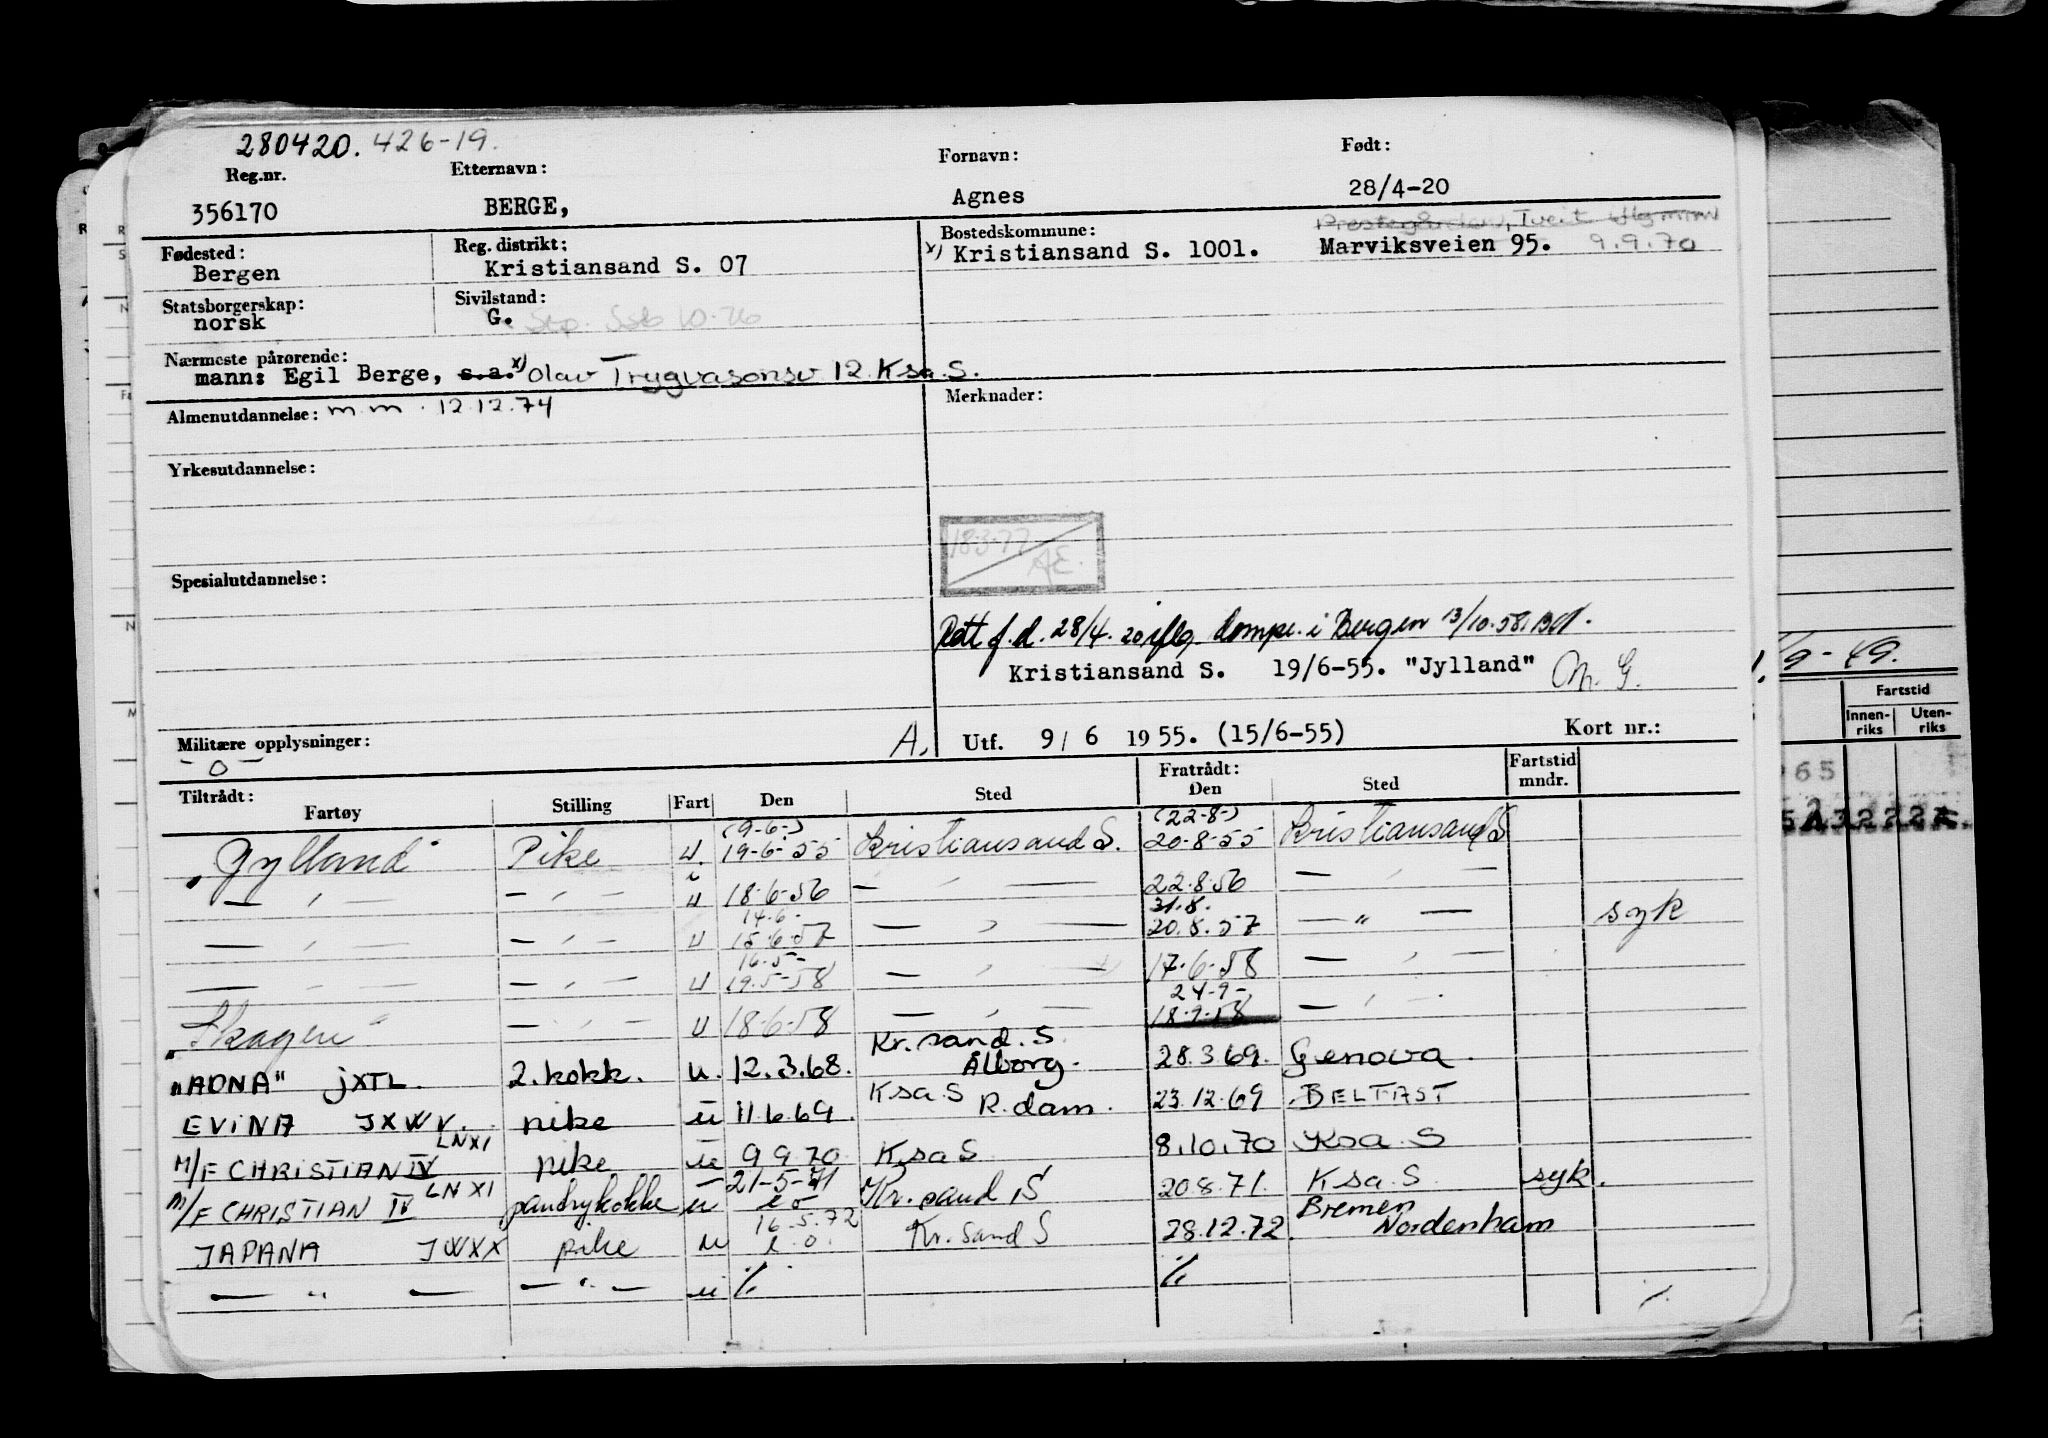 280420. 426-19.
Reg.nr. Etternavn: Fornavn: Født:
356170 BERGE, Agnes 28/4-20
Fødested: Reg. distrikt: Bostedskommune: Tveit
Bergen Kristiansand S. 07 x) Kristiansand S. 1001. Marviksveien 95. 9.9.70
Statsborgerskap: Sivilstand:
norsk G. Sep.
Nærmeste pårørende:
mann: Egil Berge, s.a. x) Olav Trygvasonsv 12 Ksa. S.
Almenutdannelse: m.m. 12.12.74 Merknader:
Yrkesutdannelse:
18.3.77
AE.
Spesialutdannelse:
Rett f.d. 28/4.20 iflg. i Bergen 13/10.58.
Kristiansand S. 19/6-55. "Jylland" M. G.
Militære opplysninger: A. Utf. 9/ 6 1955. (15/6-55) Kort nr.:
- 0 -
Tiltrådt: Fratrådt: Fartstid
Fartøy Stilling Fart Den Sted Den Sted mndr.
(9-6-) (22-8-)
"Jylland" Pike u. 19-6-55 Kristiansand S. 20-8-55 Kristiansand S
— " — — " — u 18-6-56 — " — 22.8.56 — " —
14.6- 31.8.
— " — — " — u 15.6.57 — " — 20.8.57 — " — syk
16.5-
— " — — " — u 19.5-58 — " — 17.6-58 — " —
24-9-
"Skagen" — " — u 18-6-58 — " — 18.9.58 — " —
Kr.sand. S.
"ADNA" JXTL. 2.kokk. u. 12.3.68. Ålborg. 28.3.69. Genova.
Ksa S
EVINA JXWV. pike u 11.6.69. R.dam. 23.12.69 BELFAST
LNXI
M/F CHRISTIAN IV pike u 9 9 70 Ksa S 8.10.70 Ksa. S
LNXI 21-5-71
M/F CHRISTIAN IV pantrykokke u Kr.sand S 20.8.71. Ksa. S. syk.
16.5.72 Bremen
JAPANA JWXX pike u Kr.sand S 28.12.72. Nordenham
— " — — " — u ./. ./.
/9-49.
Fartstid
Innen- Uten-
riks riks